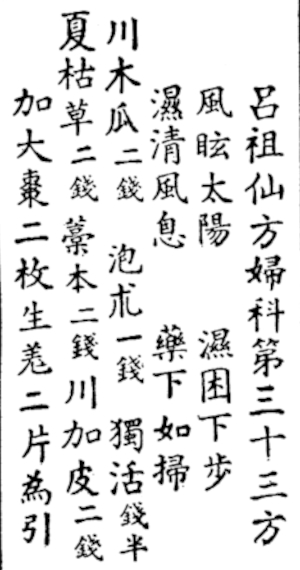 呂祖仙方婦科第三十三方
風眩太陽　濕困下步
濕清風息　藥下如掃
川木瓜二錢　泡朮一錢　獨活錢半
夏枯草二錢　藁本二錢　川加皮二錢
加大棗二枚生羗二片為引